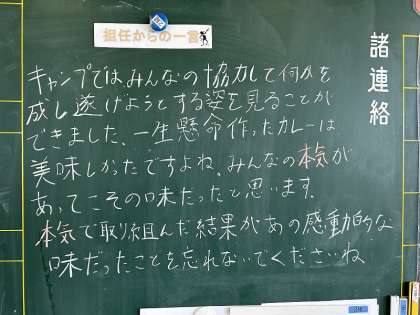 担任からの一言
諸連絡
キャンプでは、みんなの協力して何かを
成し遂げようとする姿を見ることが
できました。一生懸命作ったカレーは
美味しかったですよね。みんなの本気が
あってこその味だったと思います。
本気で取り組んだ結果があの感動的な
味だったことを忘れないでくださいね。